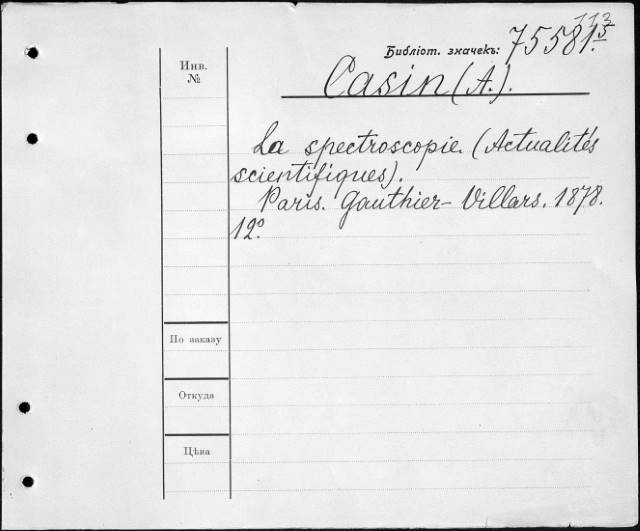 113
Библіот. значекъ: 75581.5
Инв.
№
Casin (A.).
La spectroscopie. (Actualités
scientifiques).
Paris. Gauthier-Villars. 1878.
12º.
По заказу
Откуда
Цѣна